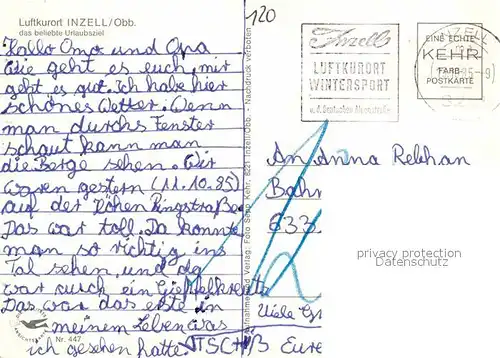 Luftkurort INZELL/Obb.
das beliebte Urlaubsziel
Hallo Oma und Opa
Wie geht es euch, mir
geht es gut. Ich habe hier
schönes Wetter. Wenn
man durchs Fenster
schaut kann man
die Berge sehen. Wir
waren gestern (11.10.85)
auf der Ringstraße
Das war toll. Da konnte
man so richtig ins
Tal sehen, und da
war auch ein
Das war das erste in
meinem Leben was
ich gesehen hatte.
TSCHÜß Eure
Nr. 447
Verlag: Foto Sepp Kehr, 8221 Inzell/Obb. - Nachdruck verboten
120
Inzell
LUFTKURORT
WINTERSPORT
a. d. Deutschen Alpenstraße
INZELL
EINE ECHTE
KEHR
FARB-
POSTKARTE
An Anna Rebhan
Bahn
633
privacy protection
Datenschutz
Viele Gr